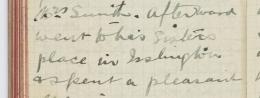 Mrs Smith. Afterward
went to his sisters
place in Islington
& spent a pleasant